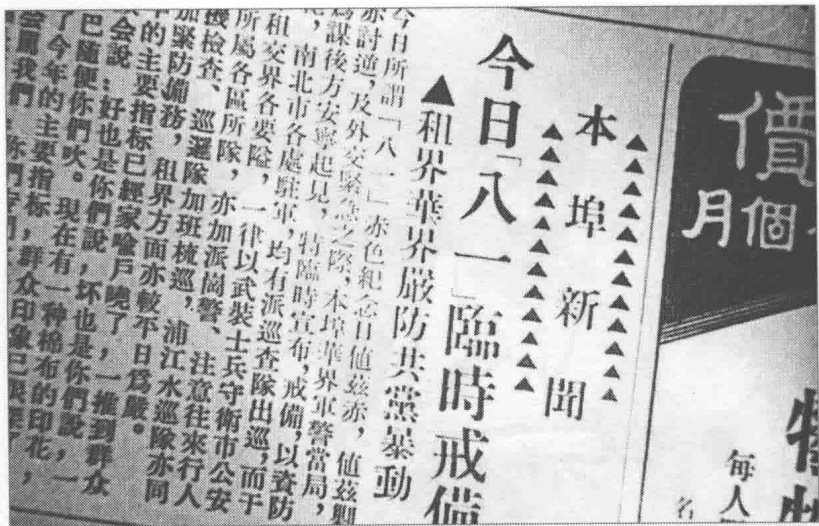 價
個月
特
每人
名
本埠新聞
今日「八一」臨時戒備
▲租界華界嚴防共黨暴動
今日所謂「八一」赤色紀念日値茲赤,値茲剿
赤討逆,及外交緊急之際,本埠華界軍警當局,
爲謀後方安寧起見,特臨時宣布,戒備,以資防
,南北市各處駐軍,均有派巡查隊出巡,而于
租交界各要隘,一律以武裝士兵守衛市公安
所屬各區所隊,亦加派崗警、注意往來行人
機檢查、巡邏隊加班梭巡,浦江水巡隊亦同
加緊防備務,租界方面亦較平日爲嚴。
的主要指标已經家喻戶曉了,一推到群众
会說:好也是你們說,坏也是你們說,一
巴隨便你們吹。現在有一种棉布的印花,
了今年的主要指标,群众印象已很深了
会罵我們